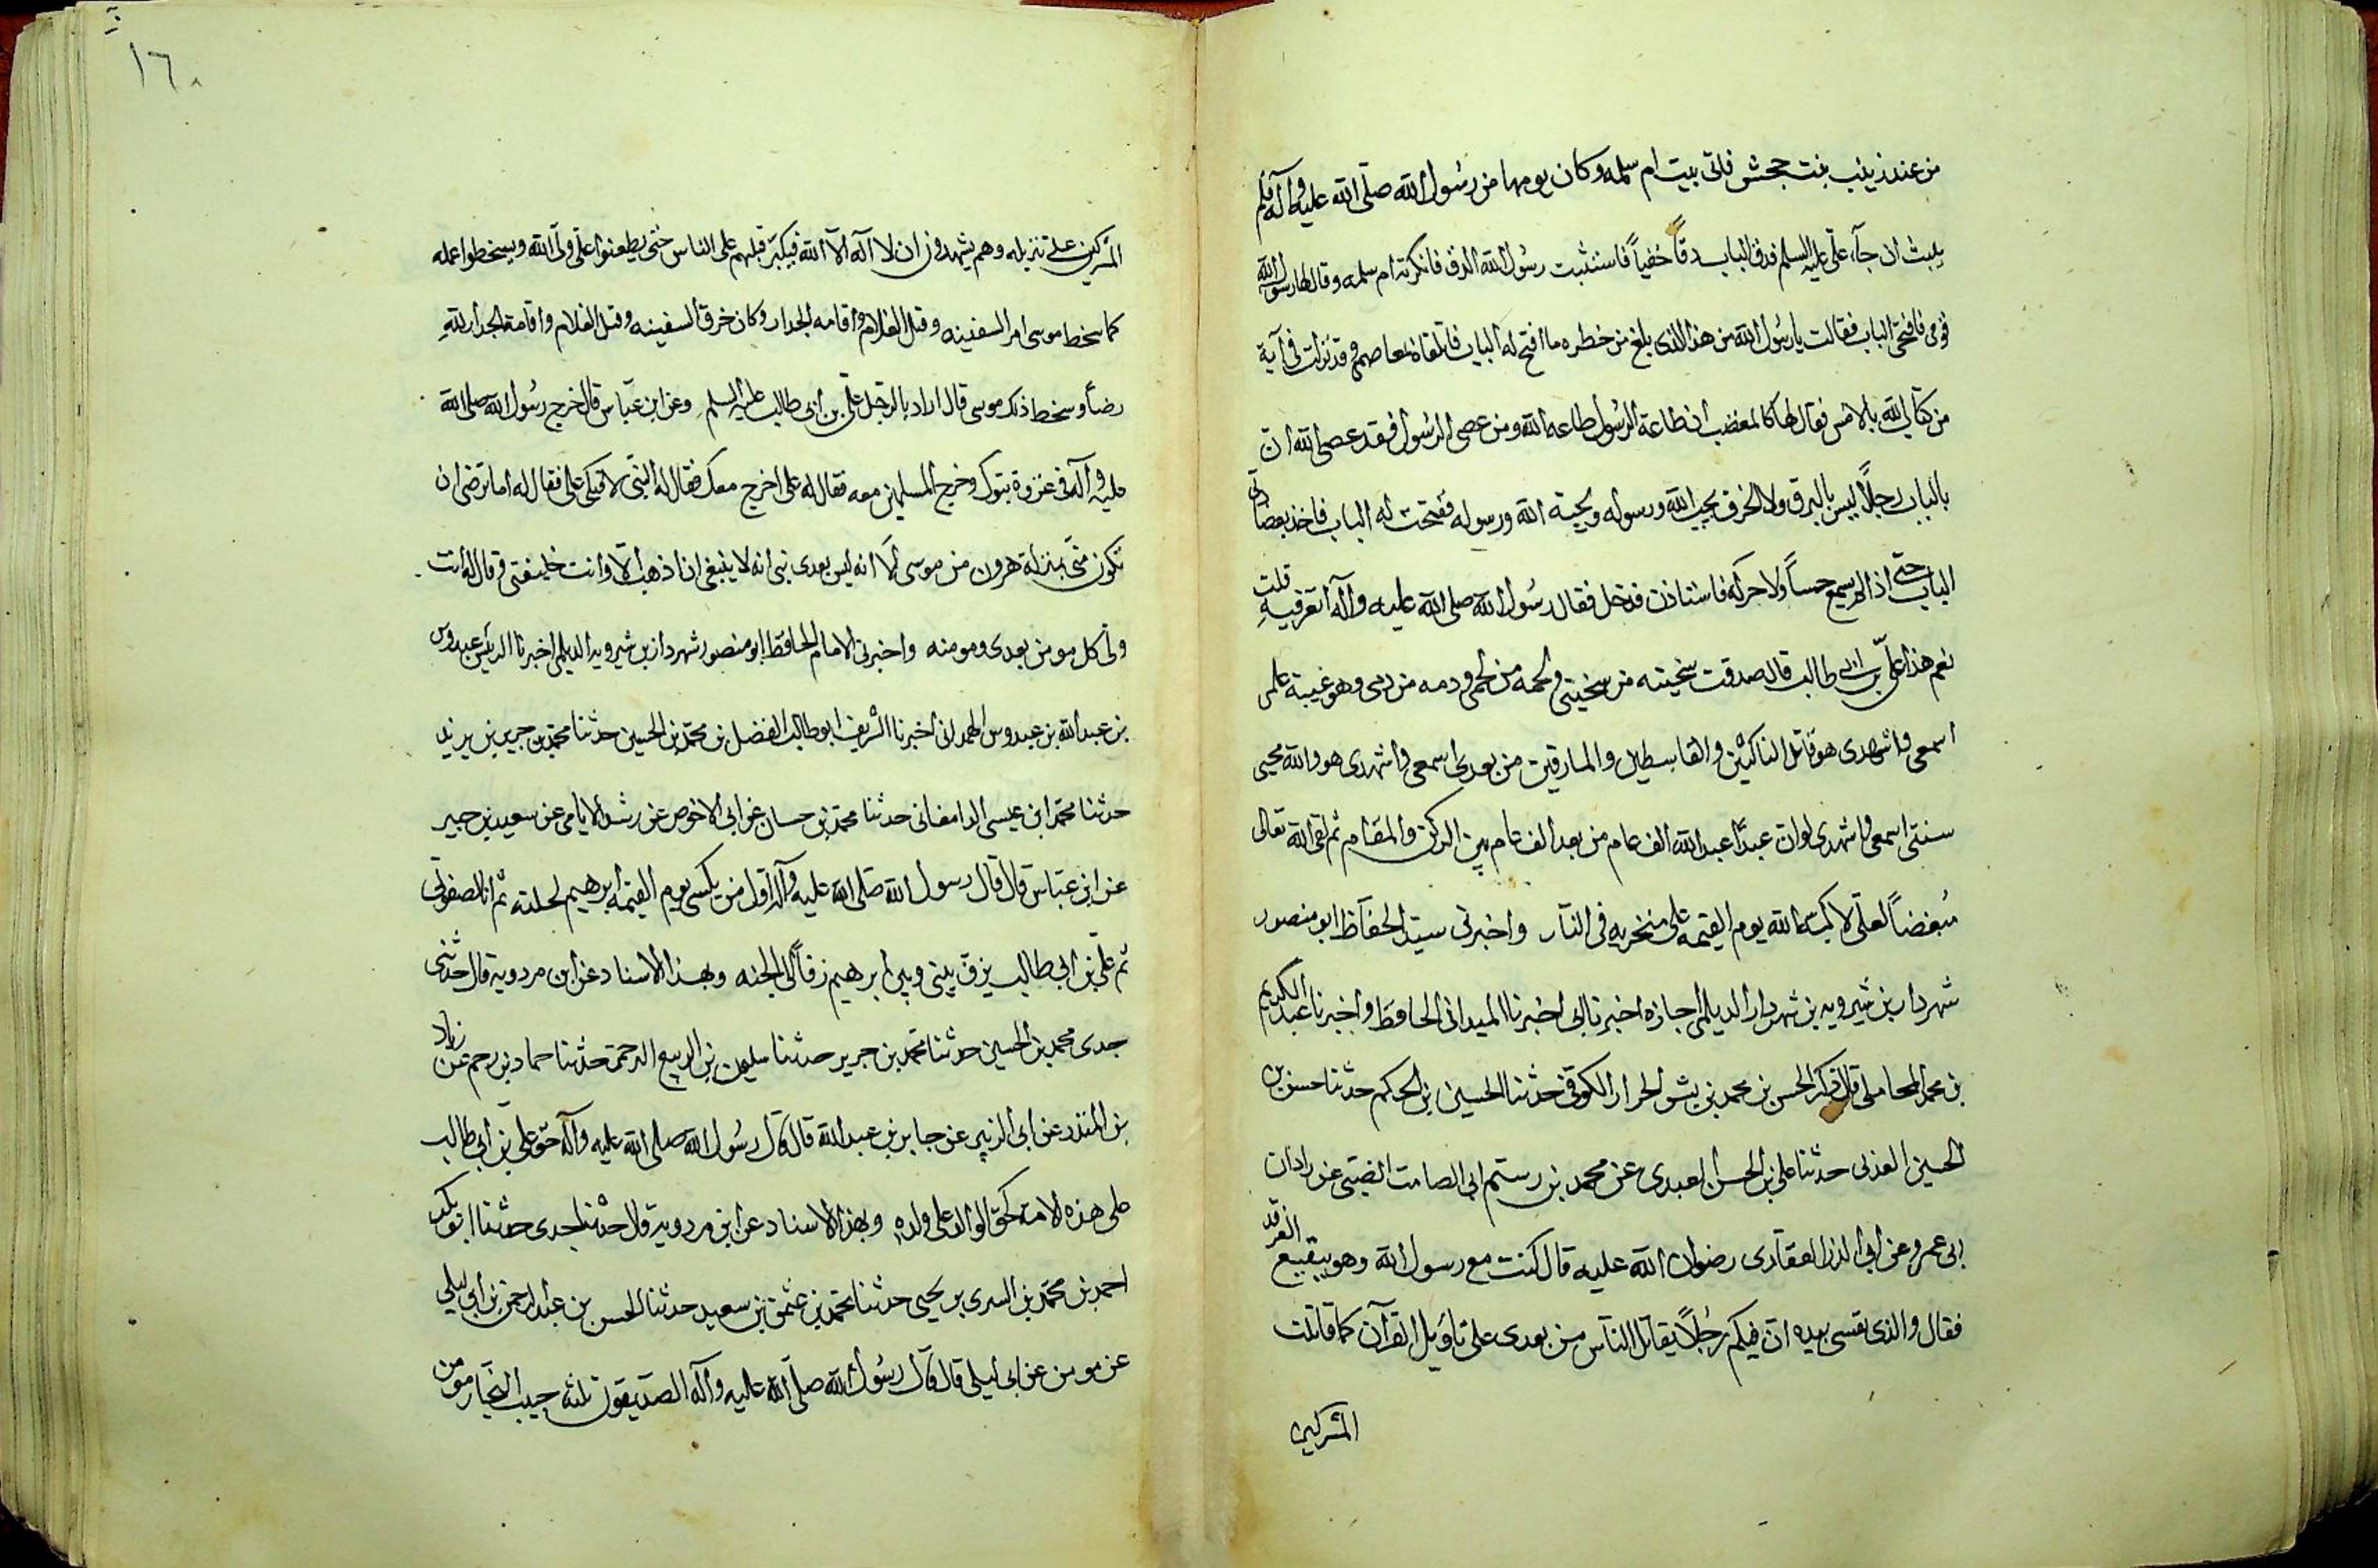 من عند زينب بنت جحش فاتى بيت ام سلمه وكان يومها من رسول الله صلى الله عليه واله فلم
يلبث ان جآء على عليه السلم فدق الباب دقاً خفياً فاستثبت رسول الله الدق فانكرته ام سلمه وقال لها رسول الله
قومى فافتحى الباب فقالت يا رسول الله من هذا الذى بلغ من خطره ما افتح له الباب فاتلقاه بمعاصمى وقد نزلت فى آية
من كتاب الله بالامس فقال لها كالمغضب ان طاعة الرسول طاعه الله ومن عصى الرسول فقد عصى الله ان
بالباب رجلاً ليس بالنرق ولا الخرق يحب الله ورسوله ويحبه الله ورسوله ففتحت له الباب فاخذ بعضادتى
الباب حتى اذا لم يسمع حساً ولا حركه فاستاذن فدخل فقال رسول الله صلى الله عليه وآله اتعرفيه قلت
نعم هذا على بن ابى طالب قال صدقت سخيته من سخيتى ولحمه من لحمى ودمه من دمى وهو عيبة علمى
اسمعى واشهدى هو قاتل الناكثين والقاسطين والمارقين من بعدى اسمعى واشهدى هو والله محيى
سنتى اسمعى واشهدى لو ان عبداً عبد الله الف عام من بعد الف عام بين الركن والمقام ثم لقى الله تعالى
مبغضاً لعلى لاكبه الله يوم القيمه على منخريه فى النار واخبرنى سيد الحفاظ ابو منصور
شهردار بن شيرويه بن شهردار الديلمى اجازه اخبرنا ابى اخبرنا الميدانى الحافظ واخبرنا عبد الكريم
بن محمد المحاملى قال ذكر الحسن بن محمد بن بشر الحرار الكوفى حدثنا الحسين بن الحكم حدثنا حسن بن
الحسين العدنى حدثنا على بن الحسن العبدى عن محمد بن رستم ابى الصامت الضبى عن رادان
ابى عمرو عن ابى الذر الغفارى رضوان الله عليه قال كنت مع رسول الله وهو ببقيع الغرقد
فقال والذى نفسى بيده ان فيكم رجلاً يقاتل الناس من بعدى على تاويل القرآن كما قاتلت
المشركين
١٦٠
المشركين على تنزيله وهم يشهدون ان لا اله الا الله فيكبر قبلهم على الناس حتى يطعنوا على ولى الله ويسخطوا عمله
كما سخط موسى امر السفينه وقتل الغلام واقامه الجدار وكان خرق السفينه وقتل الغلام واقامة الجدار لله
رضاً وسخط ذلك موسى قال اراد بالرجل على بن ابى طالب عليه السلم وعن ابن عباس قال خرج رسول الله صلى الله
عليه وآله فى غزوة تبوك وخرج المسلمين معه فقال له على اخرج معك فقال له النبى لا فبكى على فقال له اما ترضى ان
تكون منى بمنزلة هرون من موسى الا انه ليس بعدى نبى انه لا ينبغى ان اذهب الا وانت خليفتى وقال له انت
ولى كل مومن بعدى ومومنه واخبرنى الامام الحافظ ابو منصور شهردار بن شيرويه الديلمى اخبرنا الرئيس عبدوس
بن عبد الله بن عبدوس الهمدانى اخبرنا الشريف ابو طالب الفضل بن محمد بن الحسين حدثنا محمد بن جرير بن يزيد
حدثنا محمد ابن عيسى الدامغانى حدثنا محمد بن حسان عن ابى الاخوص عن رشد الايامى عن سعيد بن جبير
عن ابن عباس قال قال رسول الله صلى الله عليه وآله اول من يكسى يوم القيمه ابرهيم لحلته ثم انا لصفوتى
ثم على بن ابى طالب يزف بينى وبين ابرهيم زفاً الى الجنه وبهذا الاسناد عن ابن مردويه قال حدثنى
جدى محمد بن الحسين حدثنا محمد بن جرير حدثنا سليمن بن الربيع حدثنا حماد بن عن زياد
بن المنذر عن ابى الزبير عن جابر بن عبد الله قال قال رسول الله صلى الله عليه وآله حق على بن ابى طالب
على هذه الامة كحق الوالد على ولده وبهذا الاسناد عن ابن مردويه قال حدثنا جدى حدثنا ابو بكر
احمد بن محمد بن السرى بن يحيى حدثنا محمد بن عثمن بن سعيد حدثنا الحسن بن عبد الرحمن بن ابى ليلى
عن مومن عن ابى ليلى قال قال رسول الله صلى الله عليه وآله الصديقون ثلثه حبيب النجار مومن